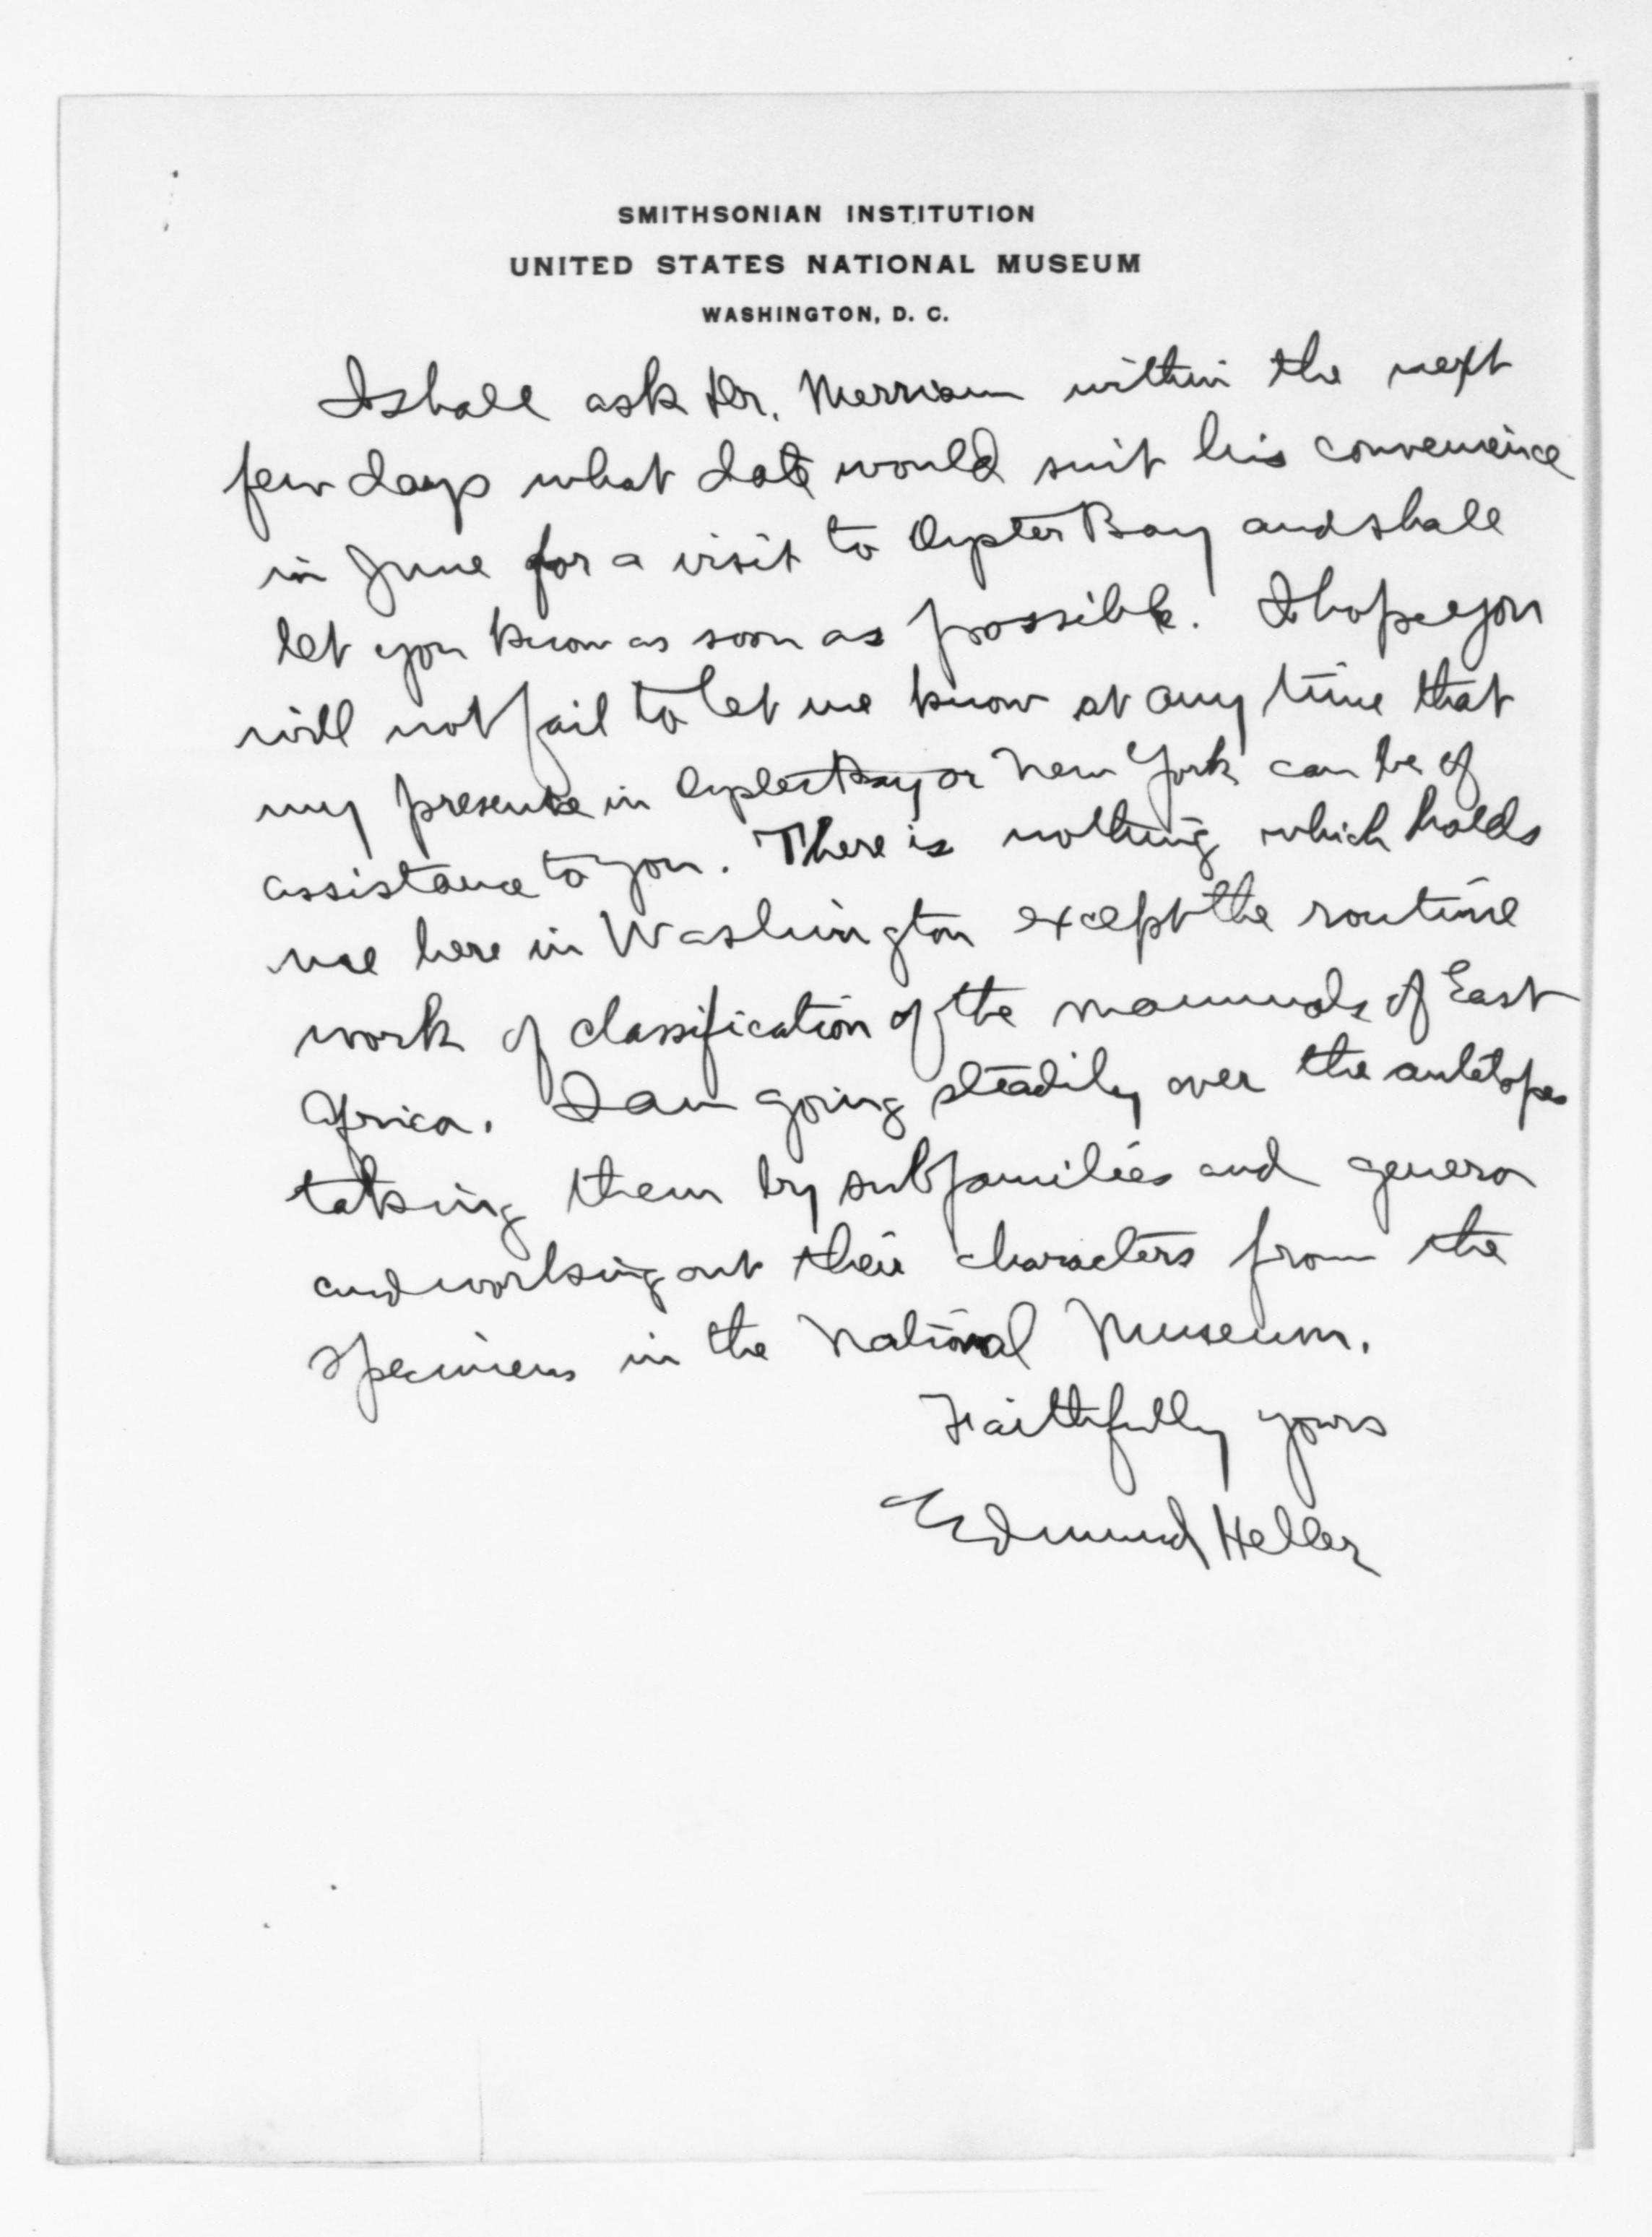 SMITHSONIAN INSTITUTION
UNITED STATES NATIONAL MUSEUM
WASHINGTON, D. C.
I shall ask Dr. Merriam within the next
few days what date would suit his convenience
in June for a visit to Oyster Bay and shall
let you know as soon as possible. I hope you
will not fail to let me know at any time that
my presence in Oyster Bay or New York can be of
assistance to you. There is nothing which holds
me here in Washington except the routine
work of classification of the mammals of East
Africa. I am going steadily over the antelopes
taking them by subfamilies and genera
and working out their characters from the
specimens in the National Museum.
Faithfully yours
Edmund Heller